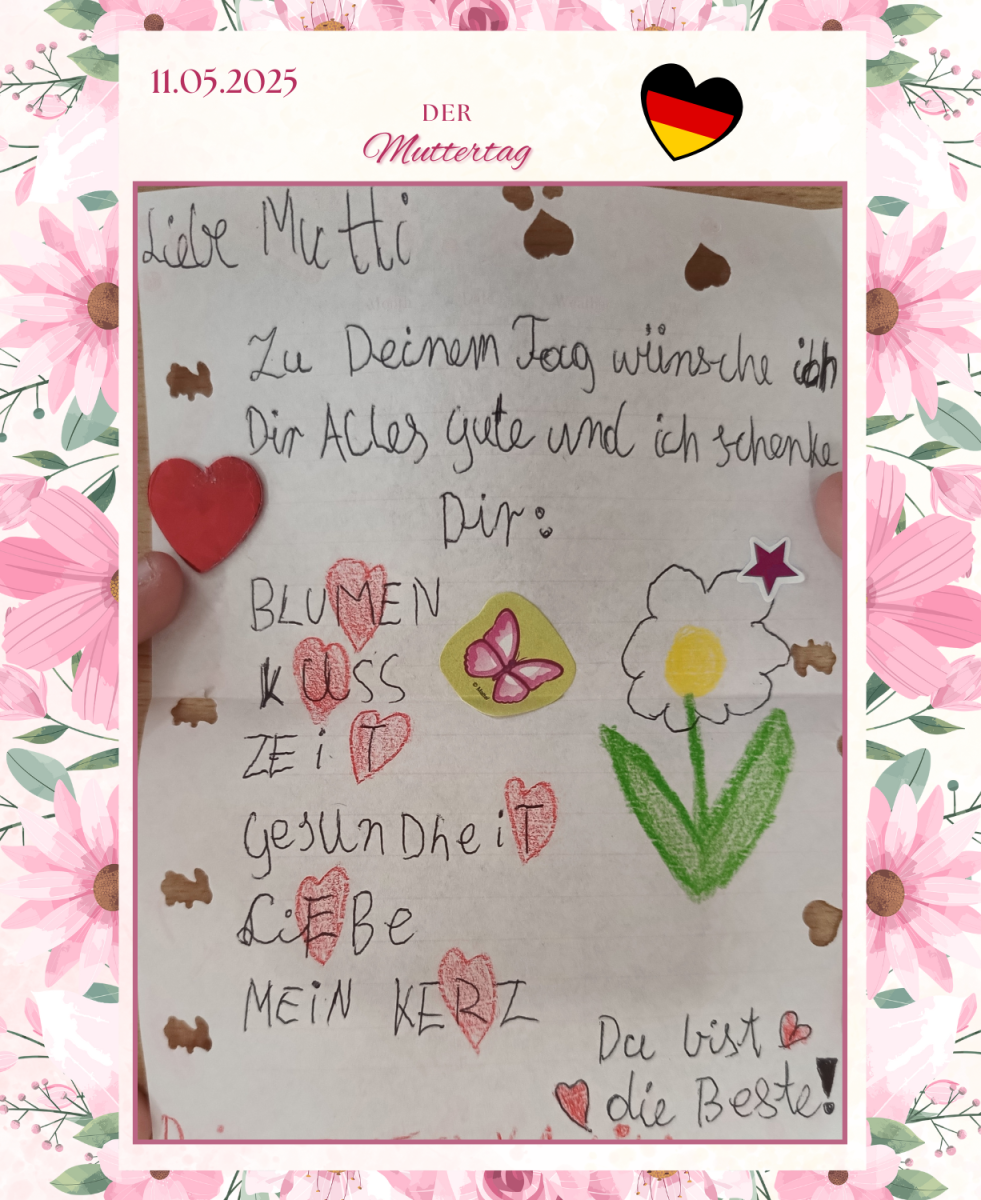 11.05.2025
DER
Muttertag
Liebe Mutti
Zu Deinem Tag wünsche ich
Dir ALLes gute und ich schenke
Dir:
BLUMEN
KUSS
ZEiT
gesUnDheiT
LiEBe
MEiN KERZ
Du bist
die Beste!